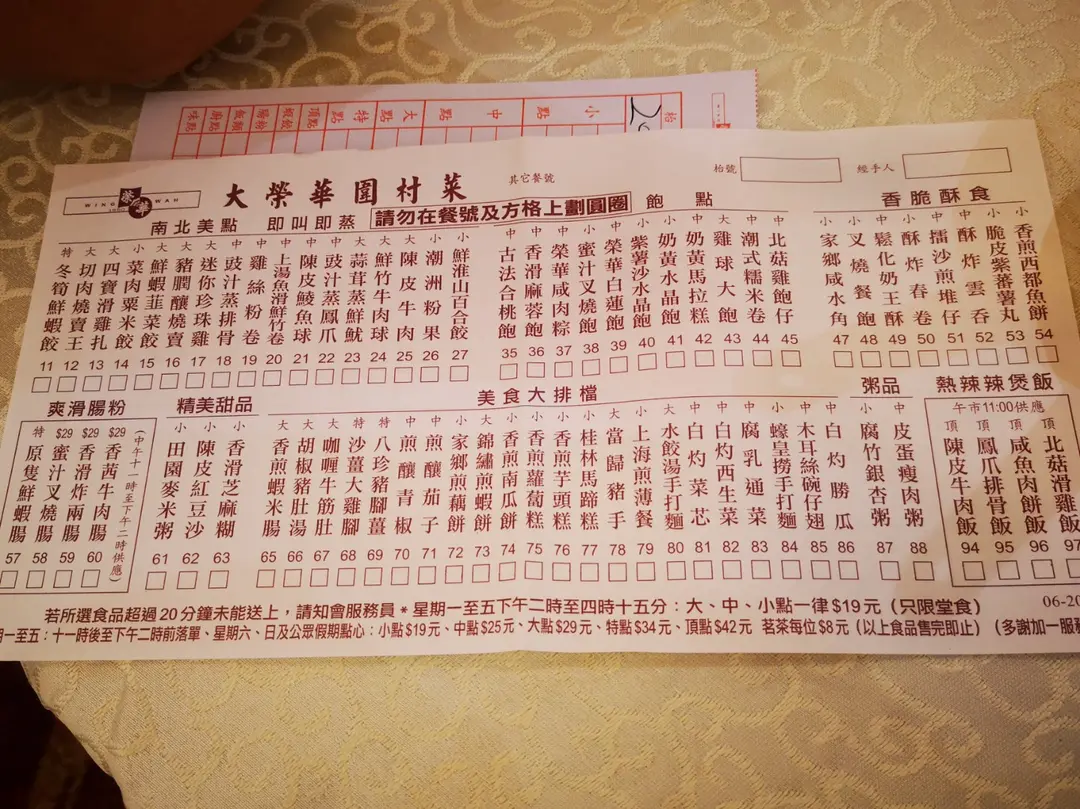 小 點
中 點
大 點
特 點
頂 點
枱
大榮華圍村菜
其它餐號
枱號
經手人
WING WAH
南北美點 即叫即蒸
請勿在餐號及方格上劃圓圈
飽 點
香脆酥食
特 冬筍鮮蝦餃 11
大 切肉燒賣王 12
大 四寶滑雞扎 13
小 菜肉粟米餃 14
大 鮮蝦韮菜餃 15
大 豬膶釀燒賣 16
小 迷你珍珠雞 17
中 豉汁蒸排骨 18
中 雞絲粉卷 19
中 上湯魚滑鮮竹卷 20
中 陳皮鯪魚球 21
中 豉汁蒸鳳爪 22
大 蒜茸蒸鮮魷 23
中 鮮竹牛肉球 24
大 陳皮牛肉 25
小 潮洲粉果 26
小 鮮淮山百合餃 27
中 古法合桃飽 35
中 香滑麻蓉飽 36
中 榮華咸肉粽 37
小 蜜汁叉燒飽 38
中 榮華白蓮飽 39
小 紫薯沙水晶飽 40
小 奶黃水晶飽 41
中 奶黃馬拉糕 42
大 雞球大飽 43
中 潮式糯米卷 44
中 北菇雞飽仔 45
小 家鄉咸水角 47
小 叉燒餐飽 48
中 鬆化奶王酥 49
中 酥炸春卷 50
中 擂沙煎堆仔 51
中 酥炸雲吞 52
小 脆皮紫蕃薯丸 53
小 香煎西都魚餅 54
爽滑腸粉
精美甜品
美食大排檔
粥品
熱辣辣煲飯
特 原隻鮮蝦腸 57
$29 蜜汁叉燒腸 58
$29 香滑炸兩腸 59
$29 香茜牛肉腸 60
(中午十一時至下午二時供應)
小 田園麥米粥 61
小 陳皮紅豆沙 62
小 香滑芝麻糊 63
大 香煎蝦米腸 65
大 胡椒豬肚湯 66
大 咖喱牛筋肚 67
特 沙薑大雞腳 68
特 八珍豬腳薑 69
中 煎釀青椒 70
中 煎釀茄子 71
小 家鄉煎藕餅 72
大 錦繡煎蝦餅 73
小 香煎南瓜餅 74
小 香煎蘿蔔糕 75
小 香煎芋頭糕 76
小 桂林馬蹄糕 77
大 當歸豬手 78
小 上海煎薄餐 79
大 水餃湯手打麵 80
中 白灼菜芯 81
中 白灼西生菜 82
中 腐乳通菜 83
小 蠔皇撈手打麵 84
中 木耳絲碗仔翅 85
中 白灼勝瓜 86
小 腐竹銀杏粥 87
中 皮蛋瘦肉粥 88
午市11:00供應
頂 陳皮牛肉飯 94
頂 鳳爪排骨飯 95
頂 咸魚肉餅飯 96
頂 北菇滑雞飯 97
若所選食品超過20分鐘未能送上，請知會服務員*星期一至五下午二時至四時十五分：大、中、小點一律$19元（只限堂食）
06-20
一至五：十一時後至下午二時前落單、星期六、日及公眾假期點心：小點$19元、中點$25元、大點$29元、特點$34元、頂點$42元 茗茶每位$8元（以上食品售完即止）（多謝加一服務